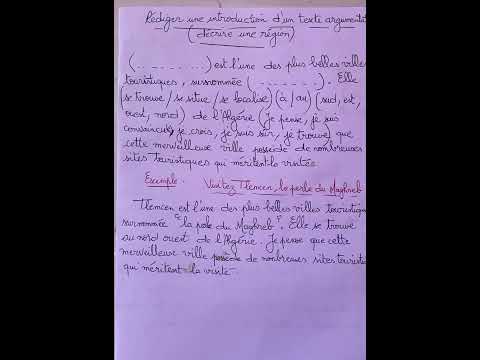 Rédiger une introduction d'un texte argumentat
(décrire une région)
(. . . . . . . . .) est l'une des plus belles villes
touristiques, surnommée (. . . . . . . .). Elle
(se trouve / se situe / se localise) (à / au) (sud, est,
ouest, nord) de l'Algérie (Je pense, je suis
convaincu, je crois, je suis sûr, je trouve) que
cette merveilleuse ville possède de nombreuses
sites touristiques qui méritent la visite.
Exemple : Visitez Tlemcen, la perle du Maghreb
Tlemcen est l'une des plus belles villes touristique
surnommée "la perle du Maghreb". Elle se trouve
au nord ouest de l'Algérie. Je pense que cette
merveilleuse ville possède de nombreuses sites tourist
qui méritent la visite.